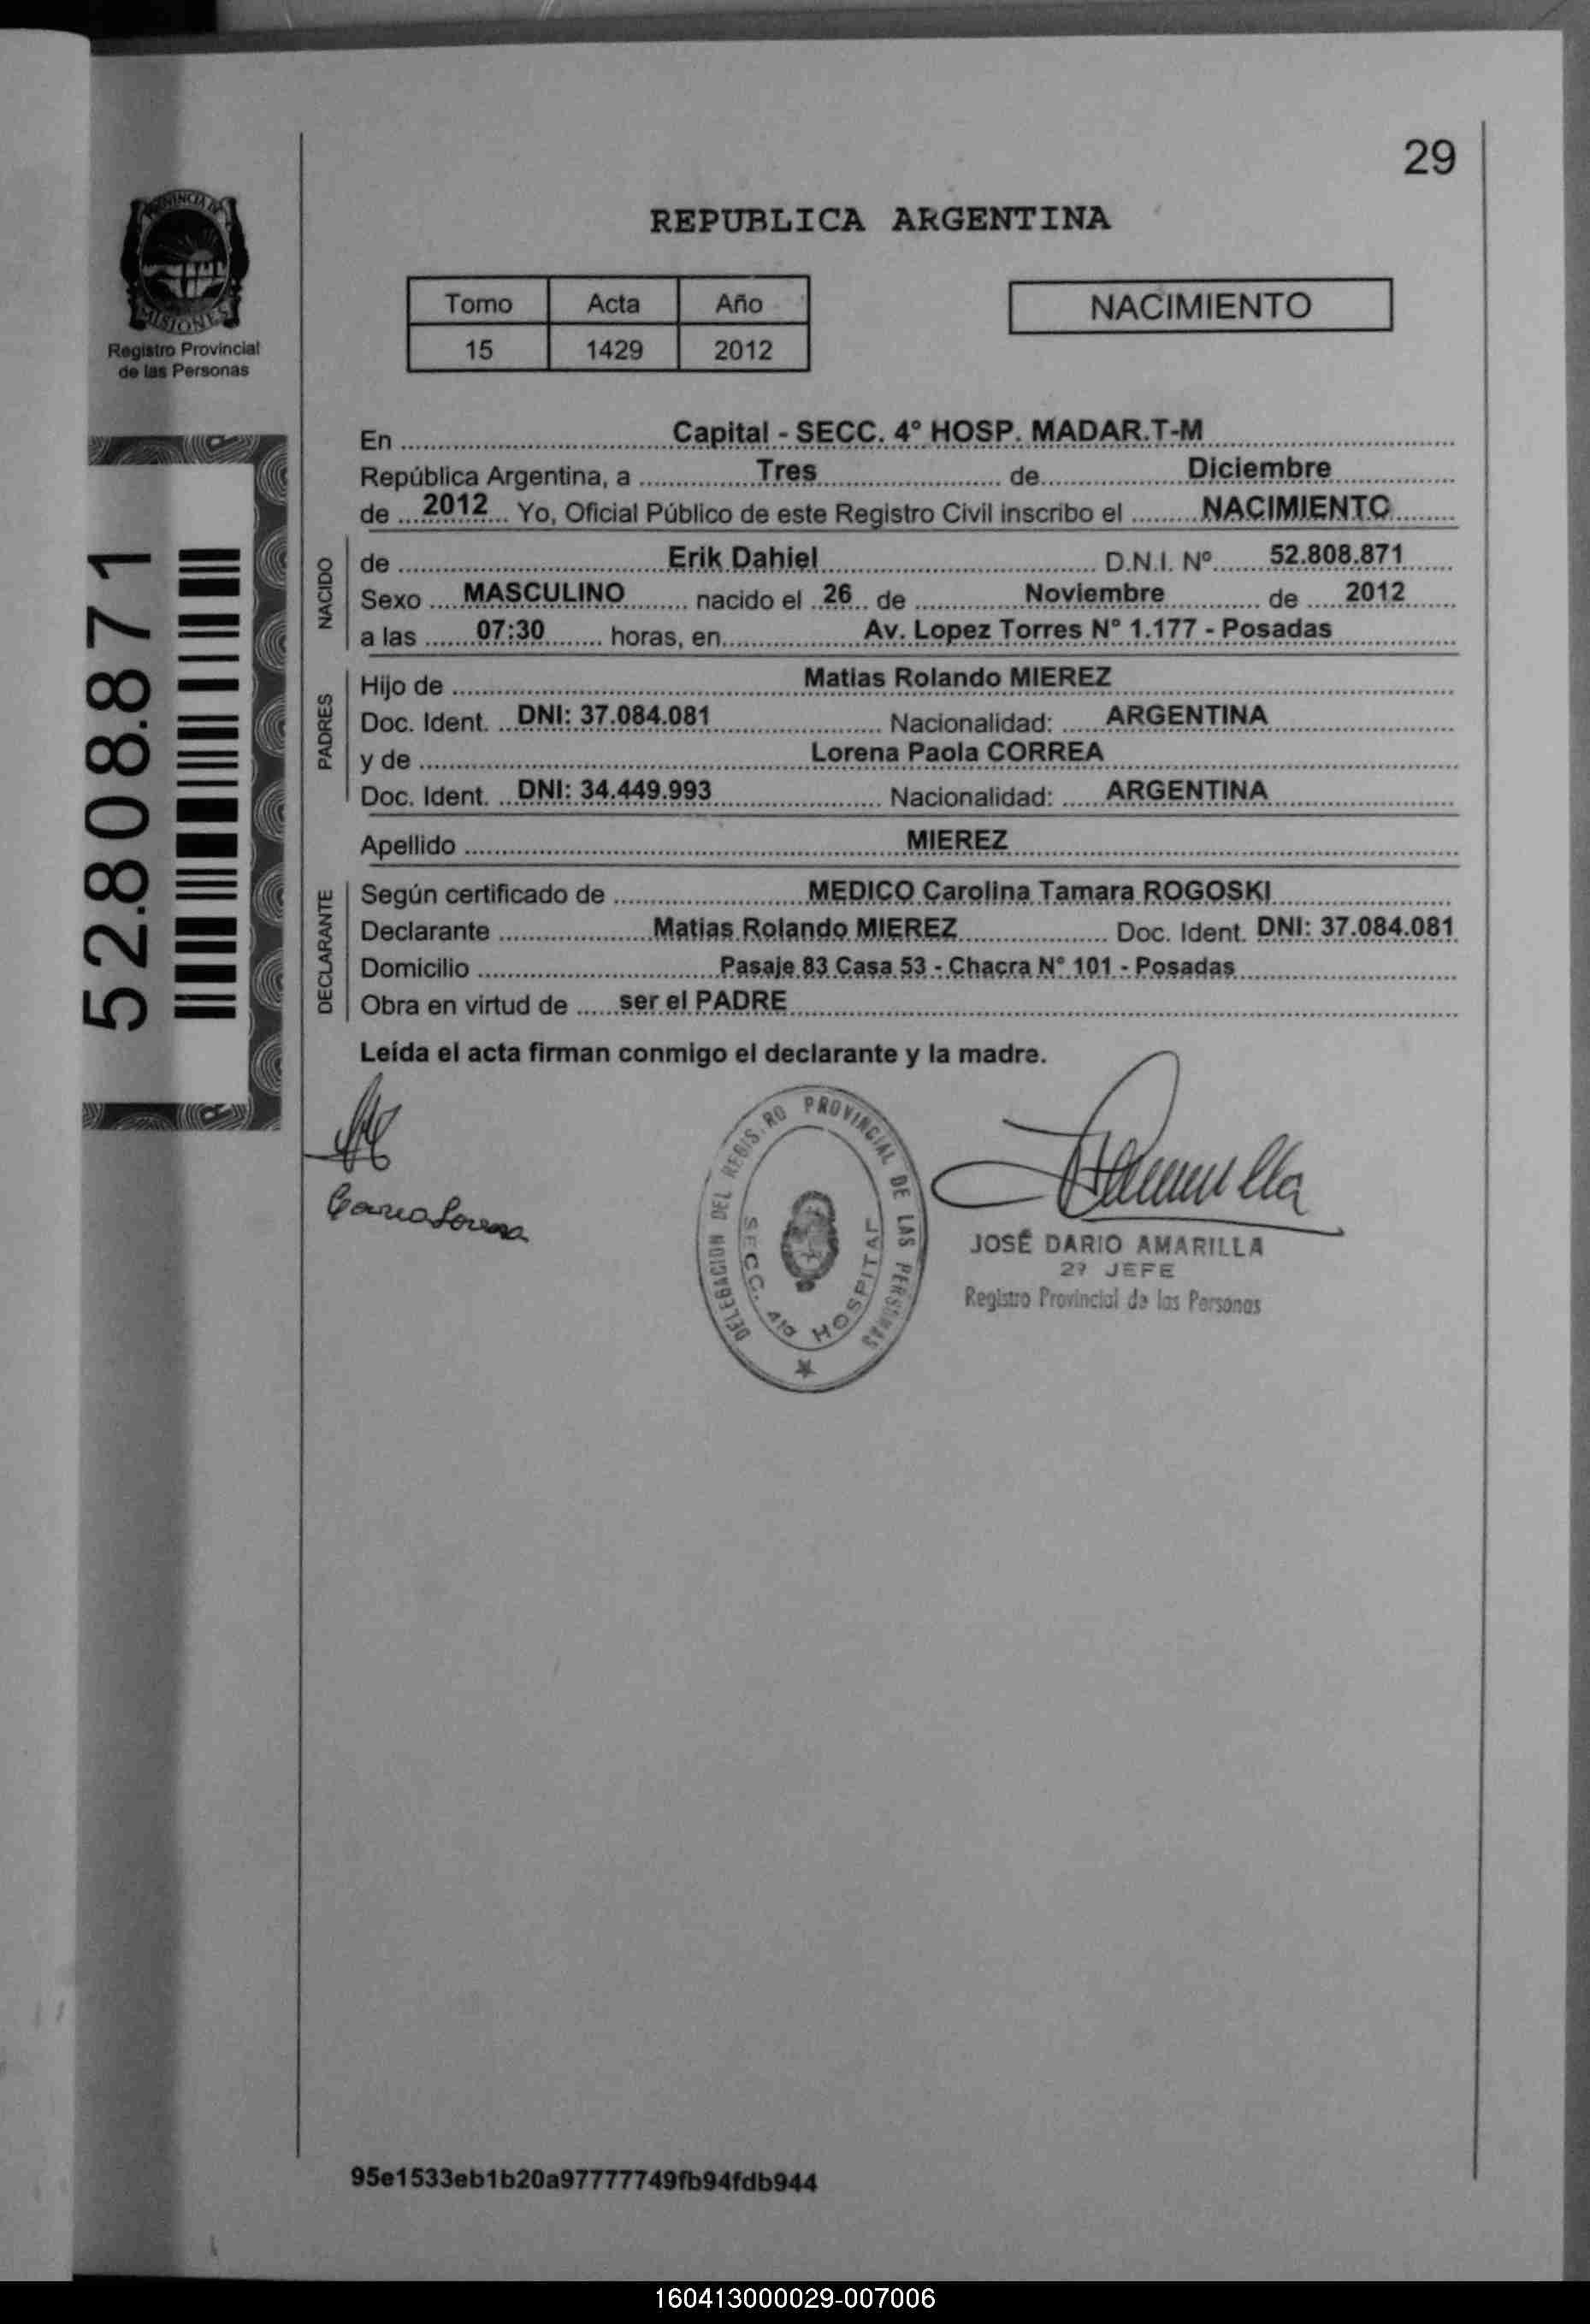 29
PROVINCIA DE
MISIONES
Registro Provincial
de las Personas
REPUBLICA ARGENTINA
Tomo Acta Año
15 1429 2012
NACIMIENTO
52.808.871
En ........ Capital - SECC. 4° HOSP. MADAR.T-M ........
República Argentina, a ........ Tres ........ de ........ Diciembre ........
de .... 2012 ... Yo, Oficial Público de este Registro Civil inscribo el ........ NACIMIENTO ........
NACIDO
de ........ Erik Dahiel ........ D.N.I. Nº ........ 52.808.871 ........
Sexo .... MASCULINO ........ nacido el .. 26 .. de ........ Noviembre ........ de ..... 2012 ........
a las ....... 07:30 ........ horas, en ........ Av. Lopez Torres N° 1.177 - Posadas ........
PADRES
Hijo de ........ Matias Rolando MIEREZ ........
Doc. Ident. ... DNI: 37.084.081 ........ Nacionalidad: ...... ARGENTINA ........
y de ........ Lorena Paola CORREA ........
Doc. Ident. ... DNI: 34.449.993 ........ Nacionalidad: ...... ARGENTINA ........
Apellido ........ MIEREZ ........
DECLARANTE
Según certificado de ........ MEDICO Carolina Tamara ROGOSKI ........
Declarante ........ Matias Rolando MIEREZ ........ Doc. Ident. DNI: 37.084.081
Domicilio ........ Pasaje 83 Casa 53 - Chacra N° 101 - Posadas ........
Obra en virtud de ...... ser el PADRE ........
Leída el acta firman conmigo el declarante y la madre.
DELEGACION DEL REGISTRO PROVINCIAL DE LAS PERSONAS
SECC. 4ta HOSPITAL
Correa Lorena
JOSÉ DARIO AMARILLA
2º JEFE
Registro Provincial de las Personas
95e1533eb1b20a97777749fb94fdb944
160413000029-007006